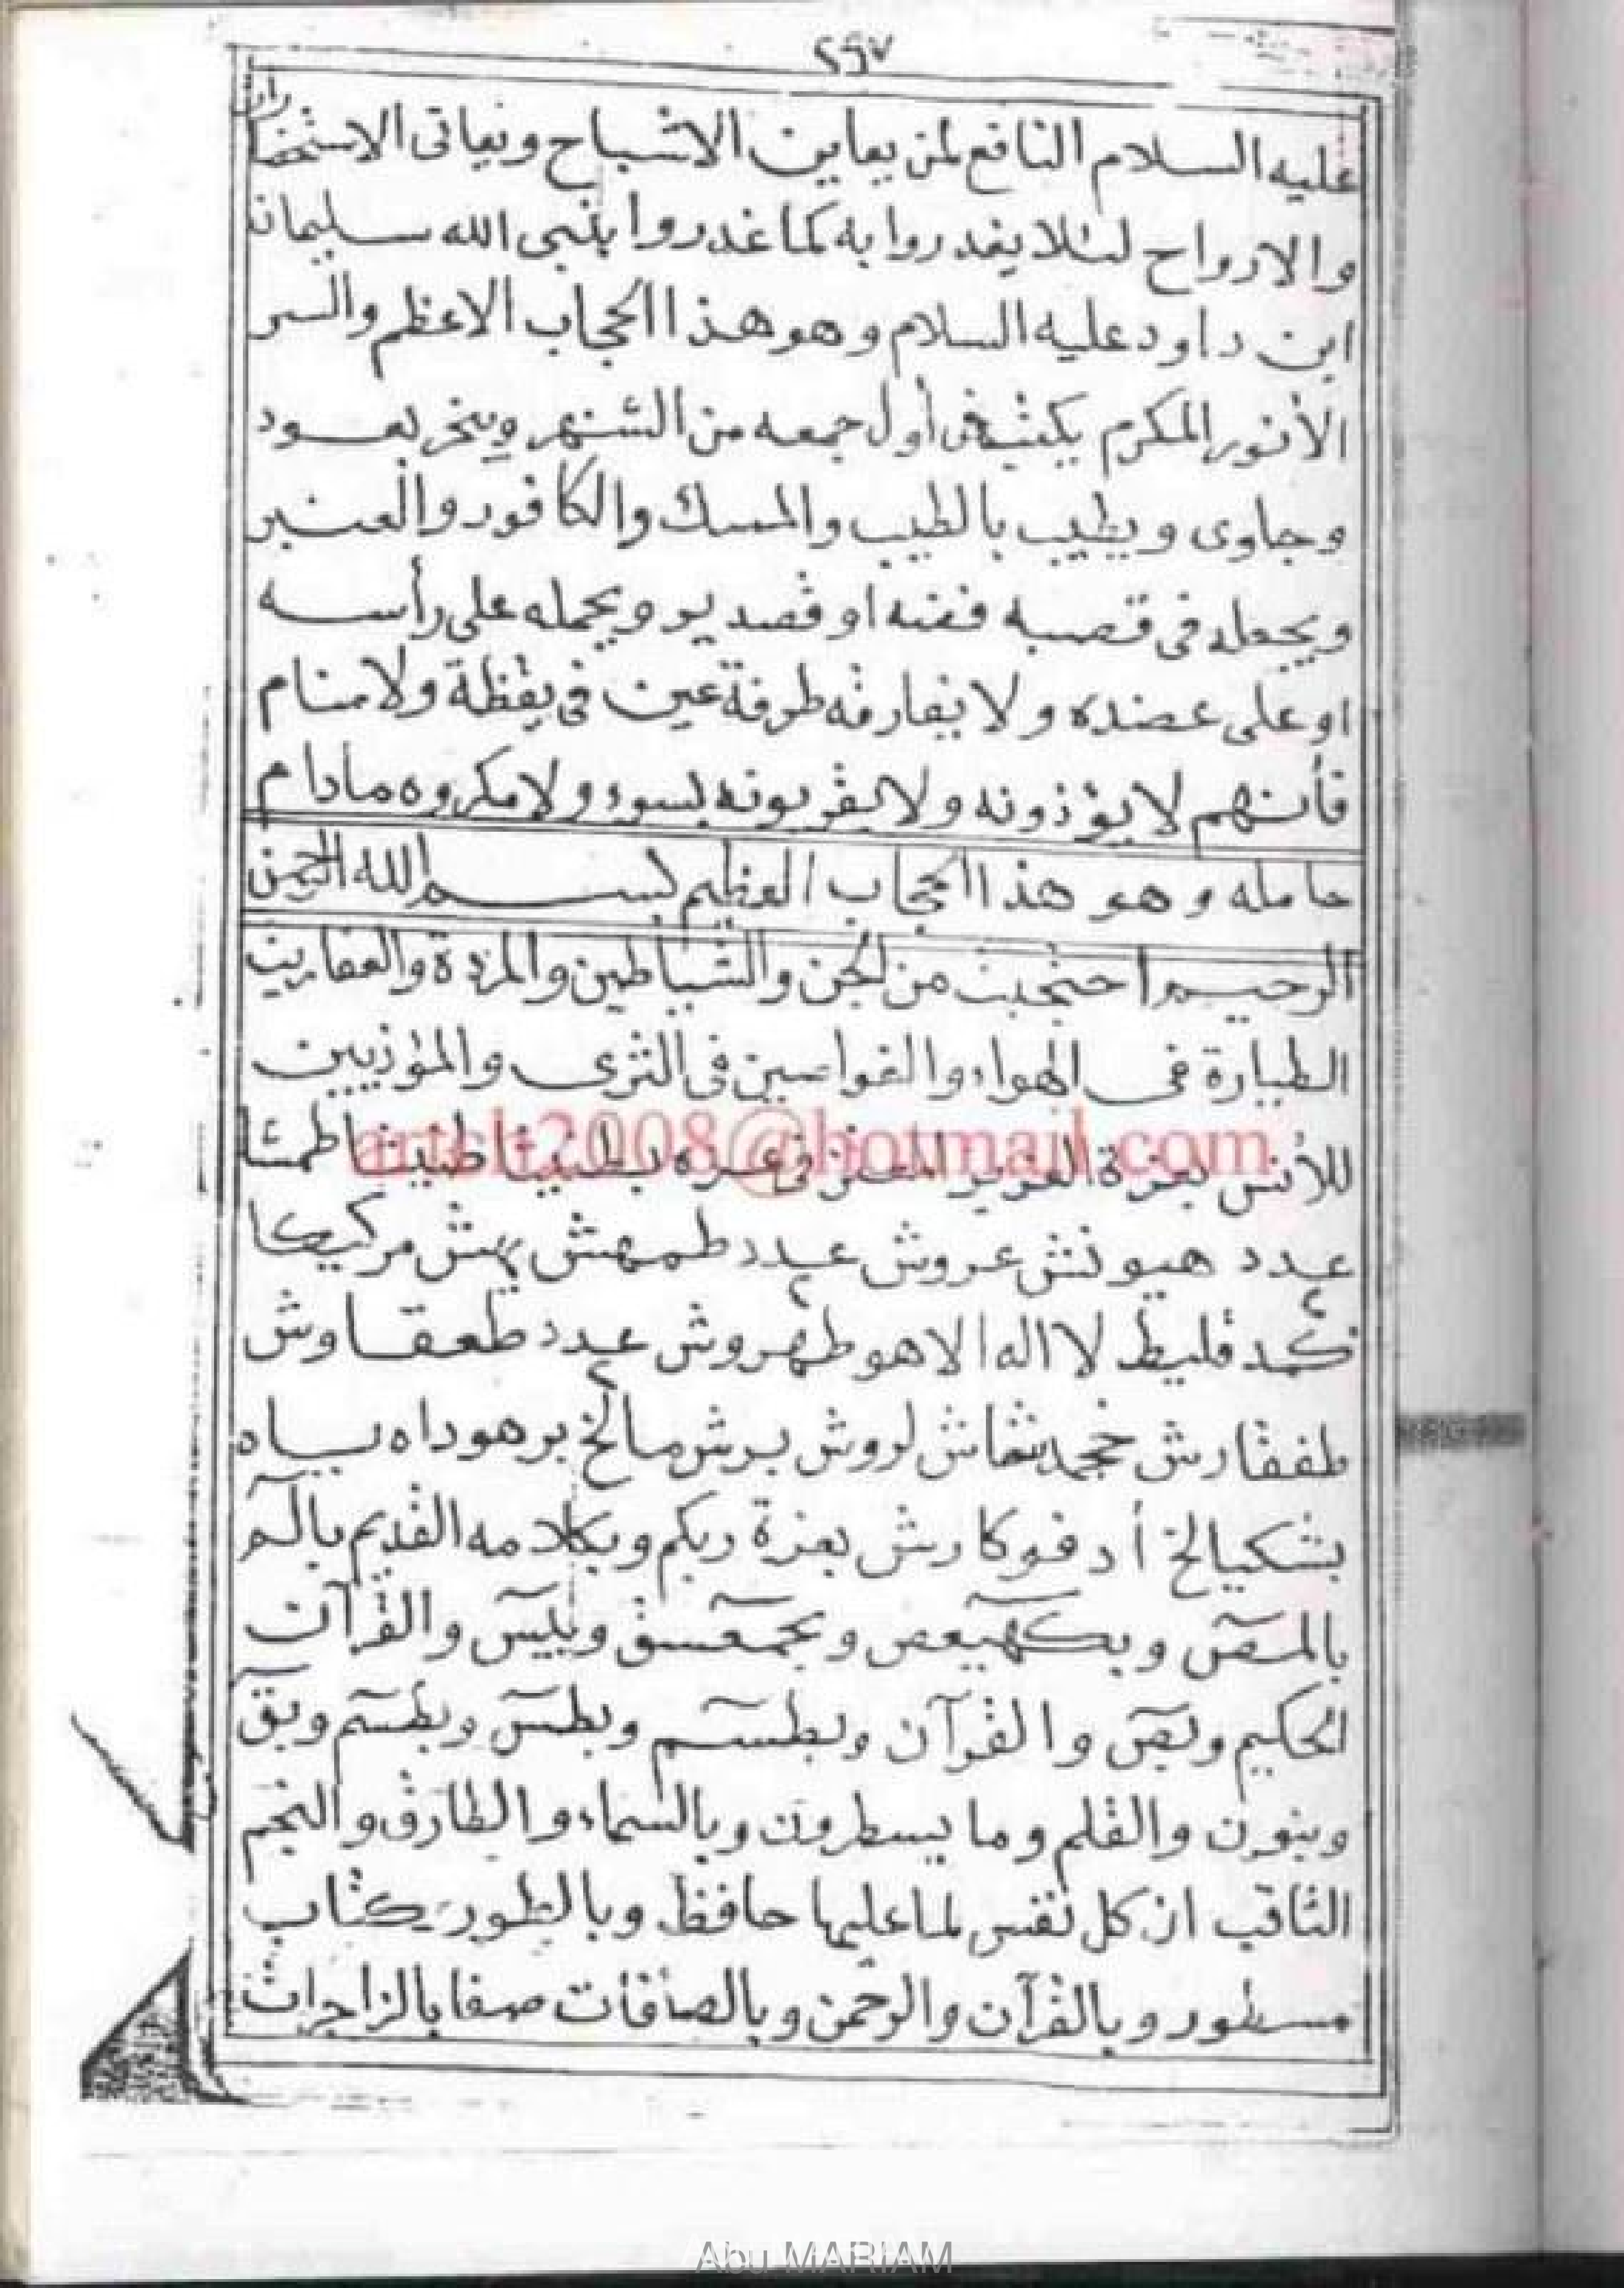 ٢٩٧
عليه السلام النافع لمن يعاين الاشباح ويعاتى الاستحضارات
والارواح لئلا يغدروا به كما غدروا بنبى الله سليمان
ابن داود عليه السلام وهو هذا الحجاب الاعظم والسر
الأنور المكرم يكتب فى أول جمعه من الشهر ويبخر بعود
وجاوى ويطيب بالطيب والمسك والكافور والعنبر
ويجعله فى قصبه فضه او قصدير ويحمله على رأسه
او على عضده ولا يفارقه طرفة عين فى يقظة ولا منام
فأنهم لا يؤذونه ولا يقربونه بسوء ولا مكروه مادام
حامله وهو هذا الحجاب العظيم بسم الله الرحمن
الرحيم احتجبت من الجن والشياطين والمردة والعفاريت
الطيارة فى الهواء والغواصين فى الثرى والمؤذيين
للأنس بعزة العزيز المعتز فى عزه بطنيثا طنيثا طمثا
arisli2008@hotmail.com
عدد هيونش عروش عدد ٢ طمهش يهش مركيكا
٢ كمد قليط لا اله الا هو طهروش عدد ٢ طعقاوش
طفقارش خجمد شقاش لروش برش مالخ برهوداه بياه
بشكيالخ أدفوكارش بعزة ربكم وبكلامه القديم بالٓم
بالمٓصٓ وبكٓهيعص وبحمٓعسق وبيسٓ والقرآن
الحكيم وبصٓ والقرآن وبطسٓم وبطسٓ وبطسٓم وبقٓ
وبنون والقلم وما يسطرون وبالسماء والطارق والنجم
الثاقب ان كل نفس لما عليها حافظ وبالطور وكتاب
مسطور وبالقرآن والرحمن وبالصافات صفا بالزاجرات
Abu MARIAM